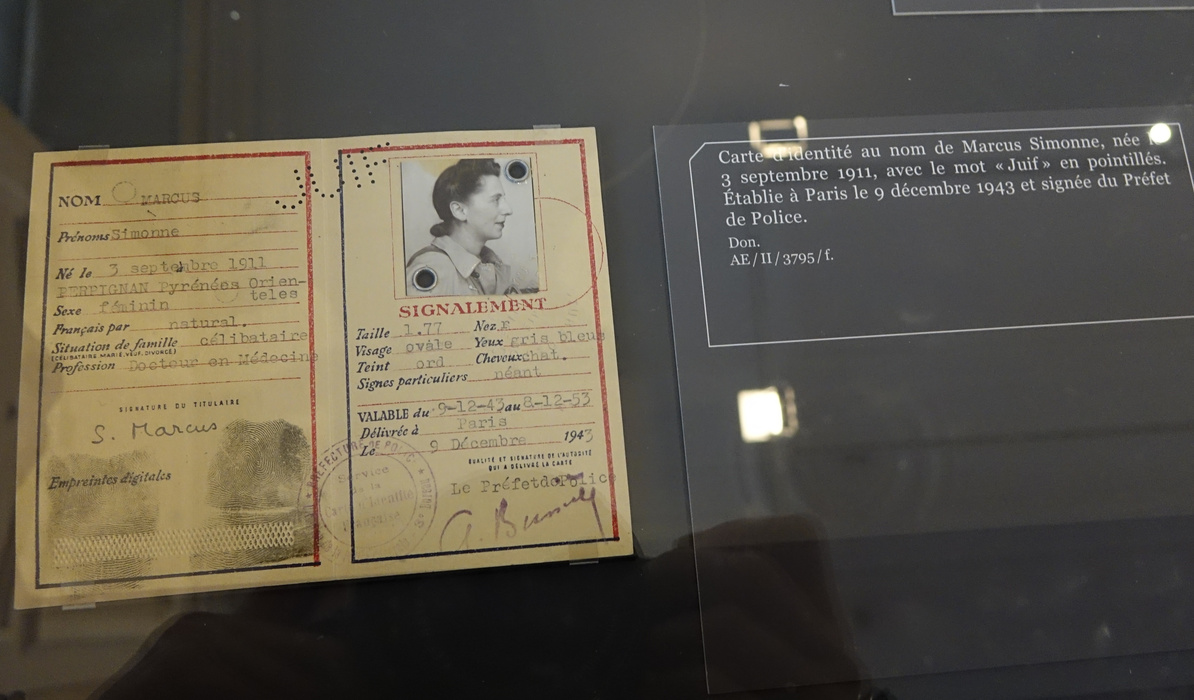 JUIF
NOM MARCUS
Prénoms Simonne
Né le 3 septembre 1911
PERPIGNAN Pyrénées Orien-
teles
Sexe féminin
Français par natural.
Situation de famille célibataire
(CÉLIBATAIRE MARIÉ, VEUF, DIVORCÉ)
Profession Docteur en Médecine
SIGNATURE DU TITULAIRE
S. Marcus
Empreintes digitales
SIGNALEMENT
Taille 1.77 Nez
Visage ovale Yeux gris bleus
Teint ord Cheveux chat.
Signes particuliers néant
VALABLE du 9-12-43 au 8-12-53
Délivrée à Paris
Le 9 Décembre 1943
QUALITÉ ET SIGNATURE DE L'AUTORITÉ
QUI A DÉLIVRÉ LA CARTE
Le Préfet de Police
PRÉFECTURE DE POLICE
Service
de la
Carte d'Identité
Française
Carte d'identité au nom de Marcus Simonne, née
3 septembre 1911, avec le mot « Juif » en pointillés.
Établie à Paris le 9 décembre 1943 et signée du Préfet
de Police.
Don.
AE/II/3795/f.